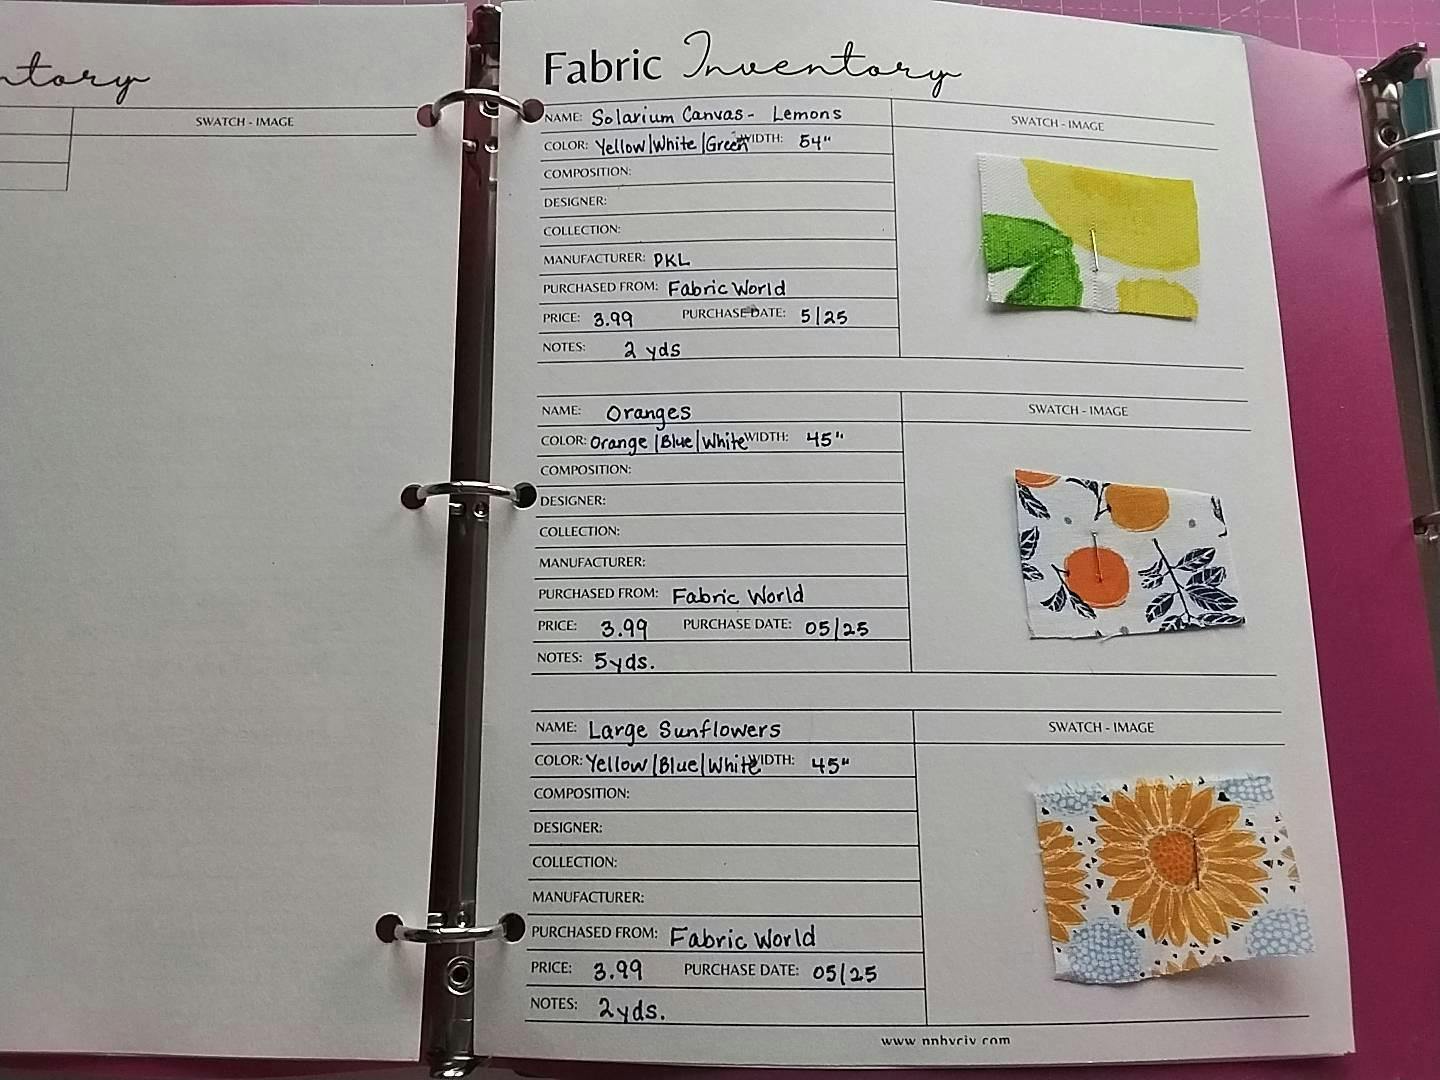 ntory
SWATCH - IMAGE
Fabric Inventory
NAME: Solarium Canvas - Lemons
SWATCH - IMAGE
COLOR: Yellow|White|Green WIDTH: 54"
COMPOSITION:
DESIGNER:
COLLECTION:
MANUFACTURER: PKL
PURCHASED FROM: Fabric World
PRICE: 3.99 PURCHASE DATE: 5/25
NOTES: 2 yds
NAME: Oranges
SWATCH - IMAGE
COLOR: Orange|Blue|White WIDTH: 45"
COMPOSITION:
DESIGNER:
COLLECTION:
MANUFACTURER:
PURCHASED FROM: Fabric World
PRICE: 3.99 PURCHASE DATE: 05/25
NOTES: 5yds.
NAME: Large Sunflowers
SWATCH - IMAGE
COLOR: Yellow|Blue|White WIDTH: 45"
COMPOSITION:
DESIGNER:
COLLECTION:
MANUFACTURER:
PURCHASED FROM: Fabric World
PRICE: 3.99 PURCHASE DATE: 05/25
NOTES: 2yds.